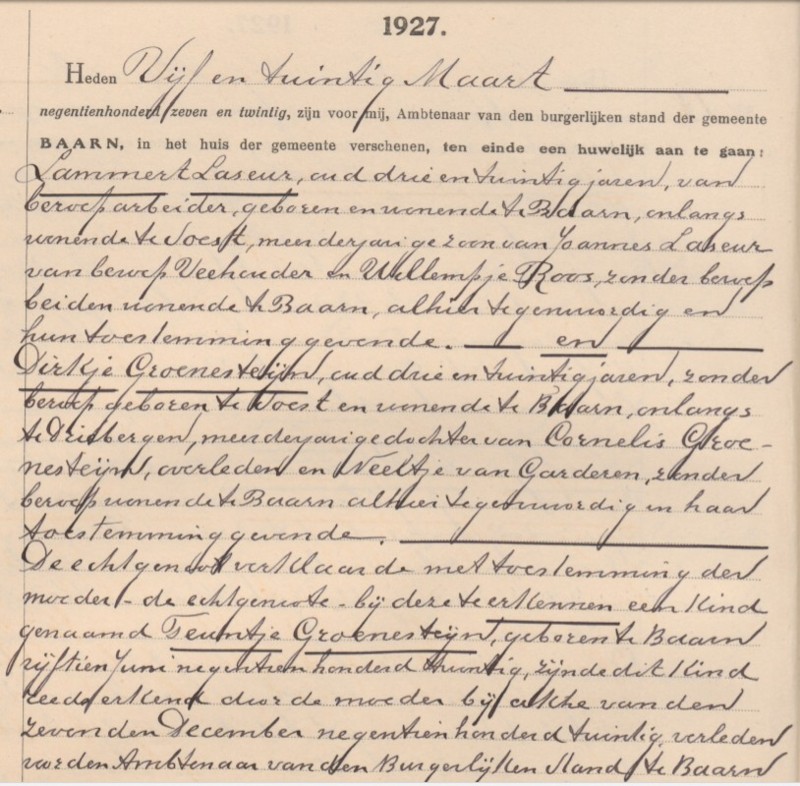 1927.
Heden Vijf en twintig Maart
negentienhonderd zeven en twintig, zijn voor mij, Ambtenaar van den burgerlijken stand der gemeente
BAARN, in het huis der gemeente verschenen, ten einde een huwelijk aan te gaan:
Lammert Laseur, oud drie en twintig jaren, van
beroep arbeider, geboren en wonende te Baarn, onlangs
wonende te Soest, meerderjarige zoon van Joannes Laseur
van beroep Veehouder en Willempje Roos, zonder beroep
beiden wonende te Baarn, alhier tegenwoordig en
hun toestemming gevende. en
Dirkje Groenesteijn, oud drie en twintig jaren, zonder
beroep geboren te Soest en wonende te Baarn, onlangs
te Driebergen, meerderjarige dochter van Cornelis Groe-
nesteijn, overleden en Neeltje van Garderen, zonder
beroep wonende te Baarn alhier tegenwoordig en haar
toestemming gevende.
De echtgenoot verklaarde met toestemming der
moeder - de echtgenote - bij deze te erkennen een kind
genaamd Teuntje Groenesteijn, geboren te Baarn
vijftien Juni negentien honderd twintig, zijnde dit kind
reeds erkend door de moeder bij akte van den
zevenden December negentien honderd twintig verleden
voor den Ambtenaar van den Burgerlijken Stand te Baarn